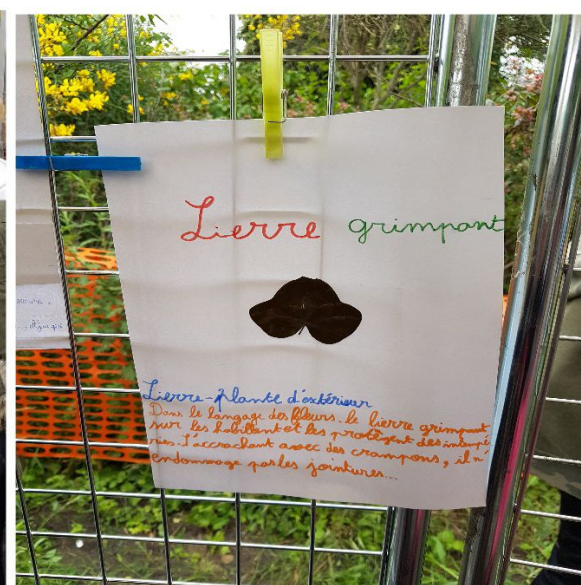 Lierre grimpant
Lierre-plante d'extérieur
Dans le langage des fleurs. le lierre grimpant
sur les habillent et les protègent des intempé
ries. S'accrochant avec des crampons, il n'
endommage pas les jointures...